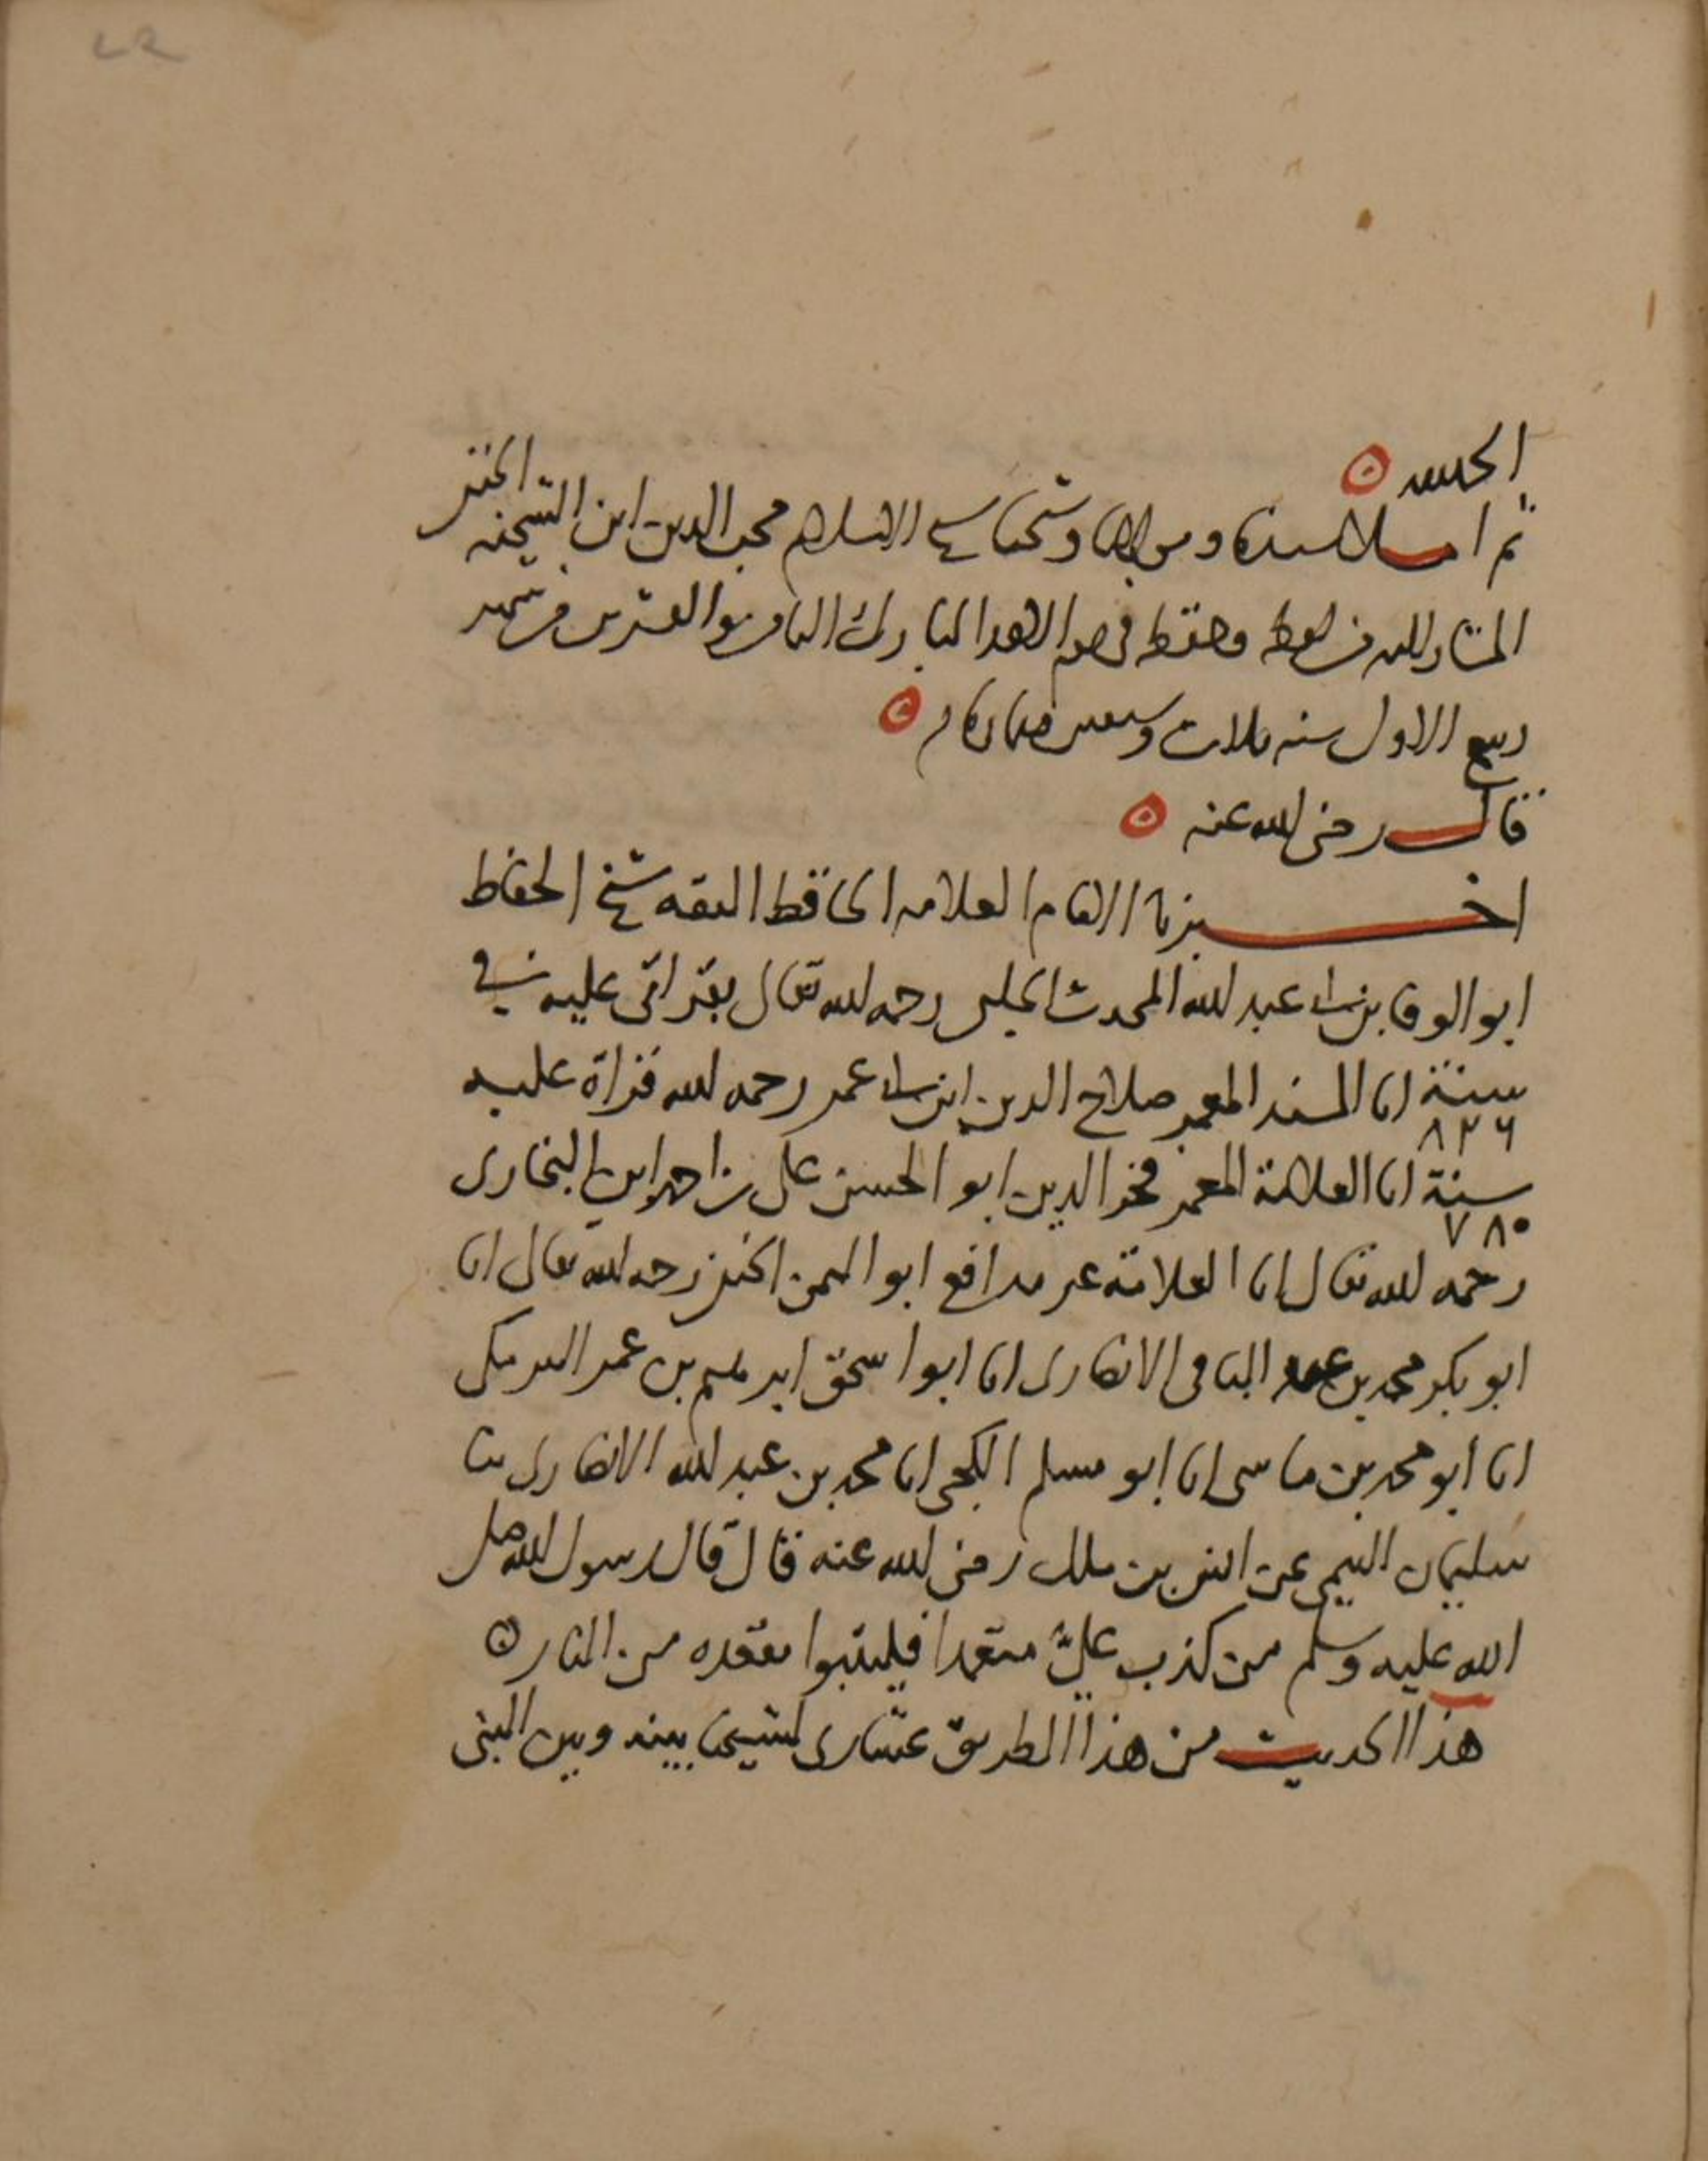 الحمد لله
ثم املا سيدنا ومولانا وشيخنا شيخ الاسلام محب الدين ابن الشحنه الحنفي
المشار اليه من لفظه وحفظه في يوم الاحد المبارك السادس والعشرين من شهر
ربيع الاول سنه ثلاث وسبعين وثمانمائه
قال رضي الله عنه
اخبرنا الامام العلامه الحافظ الثقه شيخ الحفاظ
ابو الوفا بن عبد الله المحدث الحلبي رحمه الله تعالى بقراتي عليه في
سنة ٨٢٦ انا المسند المعمر صلاح الدين ابن عمر رحمه الله قراة عليه
سنة ٧٨٠ انا العلامة المعمر فخر الدين ابو الحسن علي بن احمد ابن البخاري
رحمه الله تعالى انا العلامة ابو اليمن الكندي رحمه الله تعالى انا
ابو بكر محمد بن عبد الباقي الانصاري انا ابو اسحق ابرهيم بن عمر البرمكي
انا ابو محمد بن ماسي انا ابو مسلم الكجي انا محمد بن عبد الله الانصاري ثنا
سليمان التيمي عن انس بن ملك رضي الله عنه قال قال رسول الله صلى
الله عليه وسلم من كذب علي متعمدا فليتبوا مقعده من النار
هذا الحديث من هذا الطريق عشاري لشيخنا بينه وبين النبي